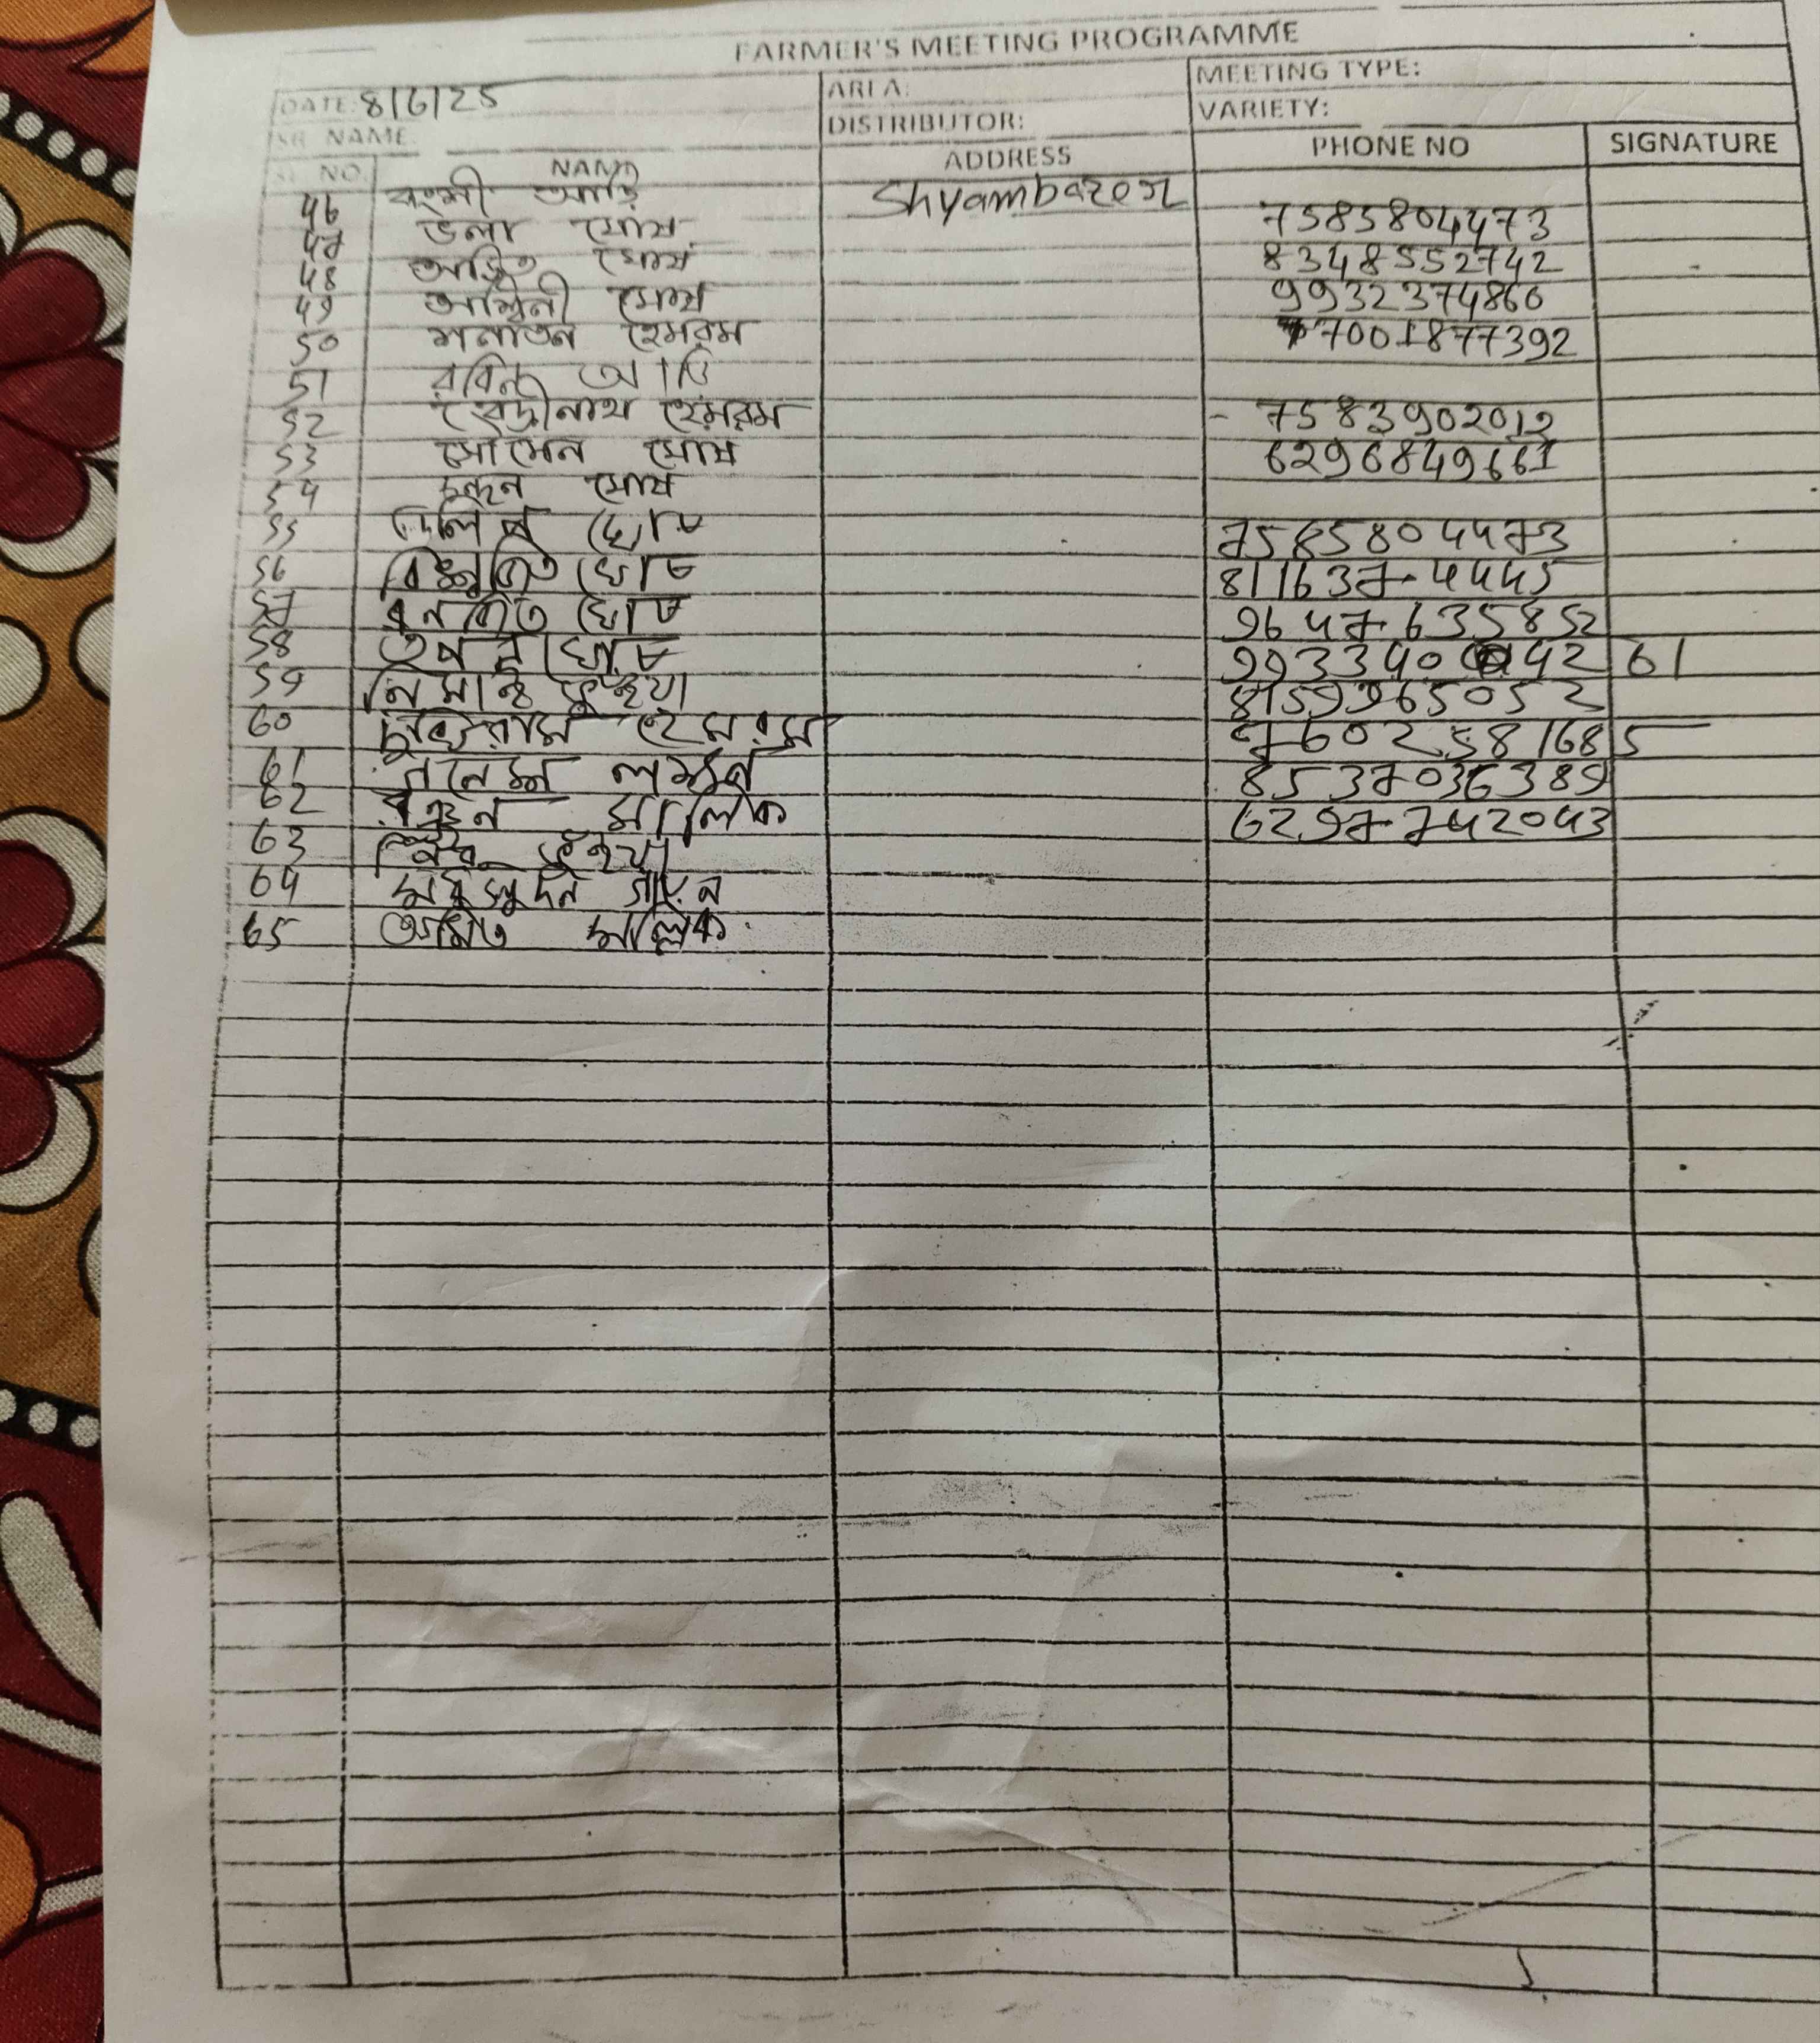 FARMER'S MEETING PROGRAMME
DATE: 8/6/25 AREA: MEETING TYPE:
SR. NAME. DISTRIBUTOR: VARIETY:
SL NO. NAME ADDRESS PHONE NO SIGNATURE
46 বংশী আড়ি Shyambazar
47 ভলা ঘোষ 7585804473
48 অজিত ঘোষ 8348552742
49 অশ্বিনী ঘোষ 9932374860
50 সনাতন হেমরম 7001877392
51 রবিন
52 বৈদ্রীনাথ হেমরম - 7583902012
53 সৌমেন ঘোষ 6296849661
54 চন্দন ঘোষ
55 দিলিপ ঘোষ 7585804473
56 ঘোষ 811637-4445
57 রনজিত ঘোষ 9647635852
58 তপন ঘোষ 61
59 নিমাই ভুইয়া 8159965052
60 হেমরম 7602581685
61 গনেশ 8537036389
62 রঞ্জন মালিক 6297742043
63 ভুইয়া
64 মধুসুদন গায়েন
65 অমিত মাল্লিক